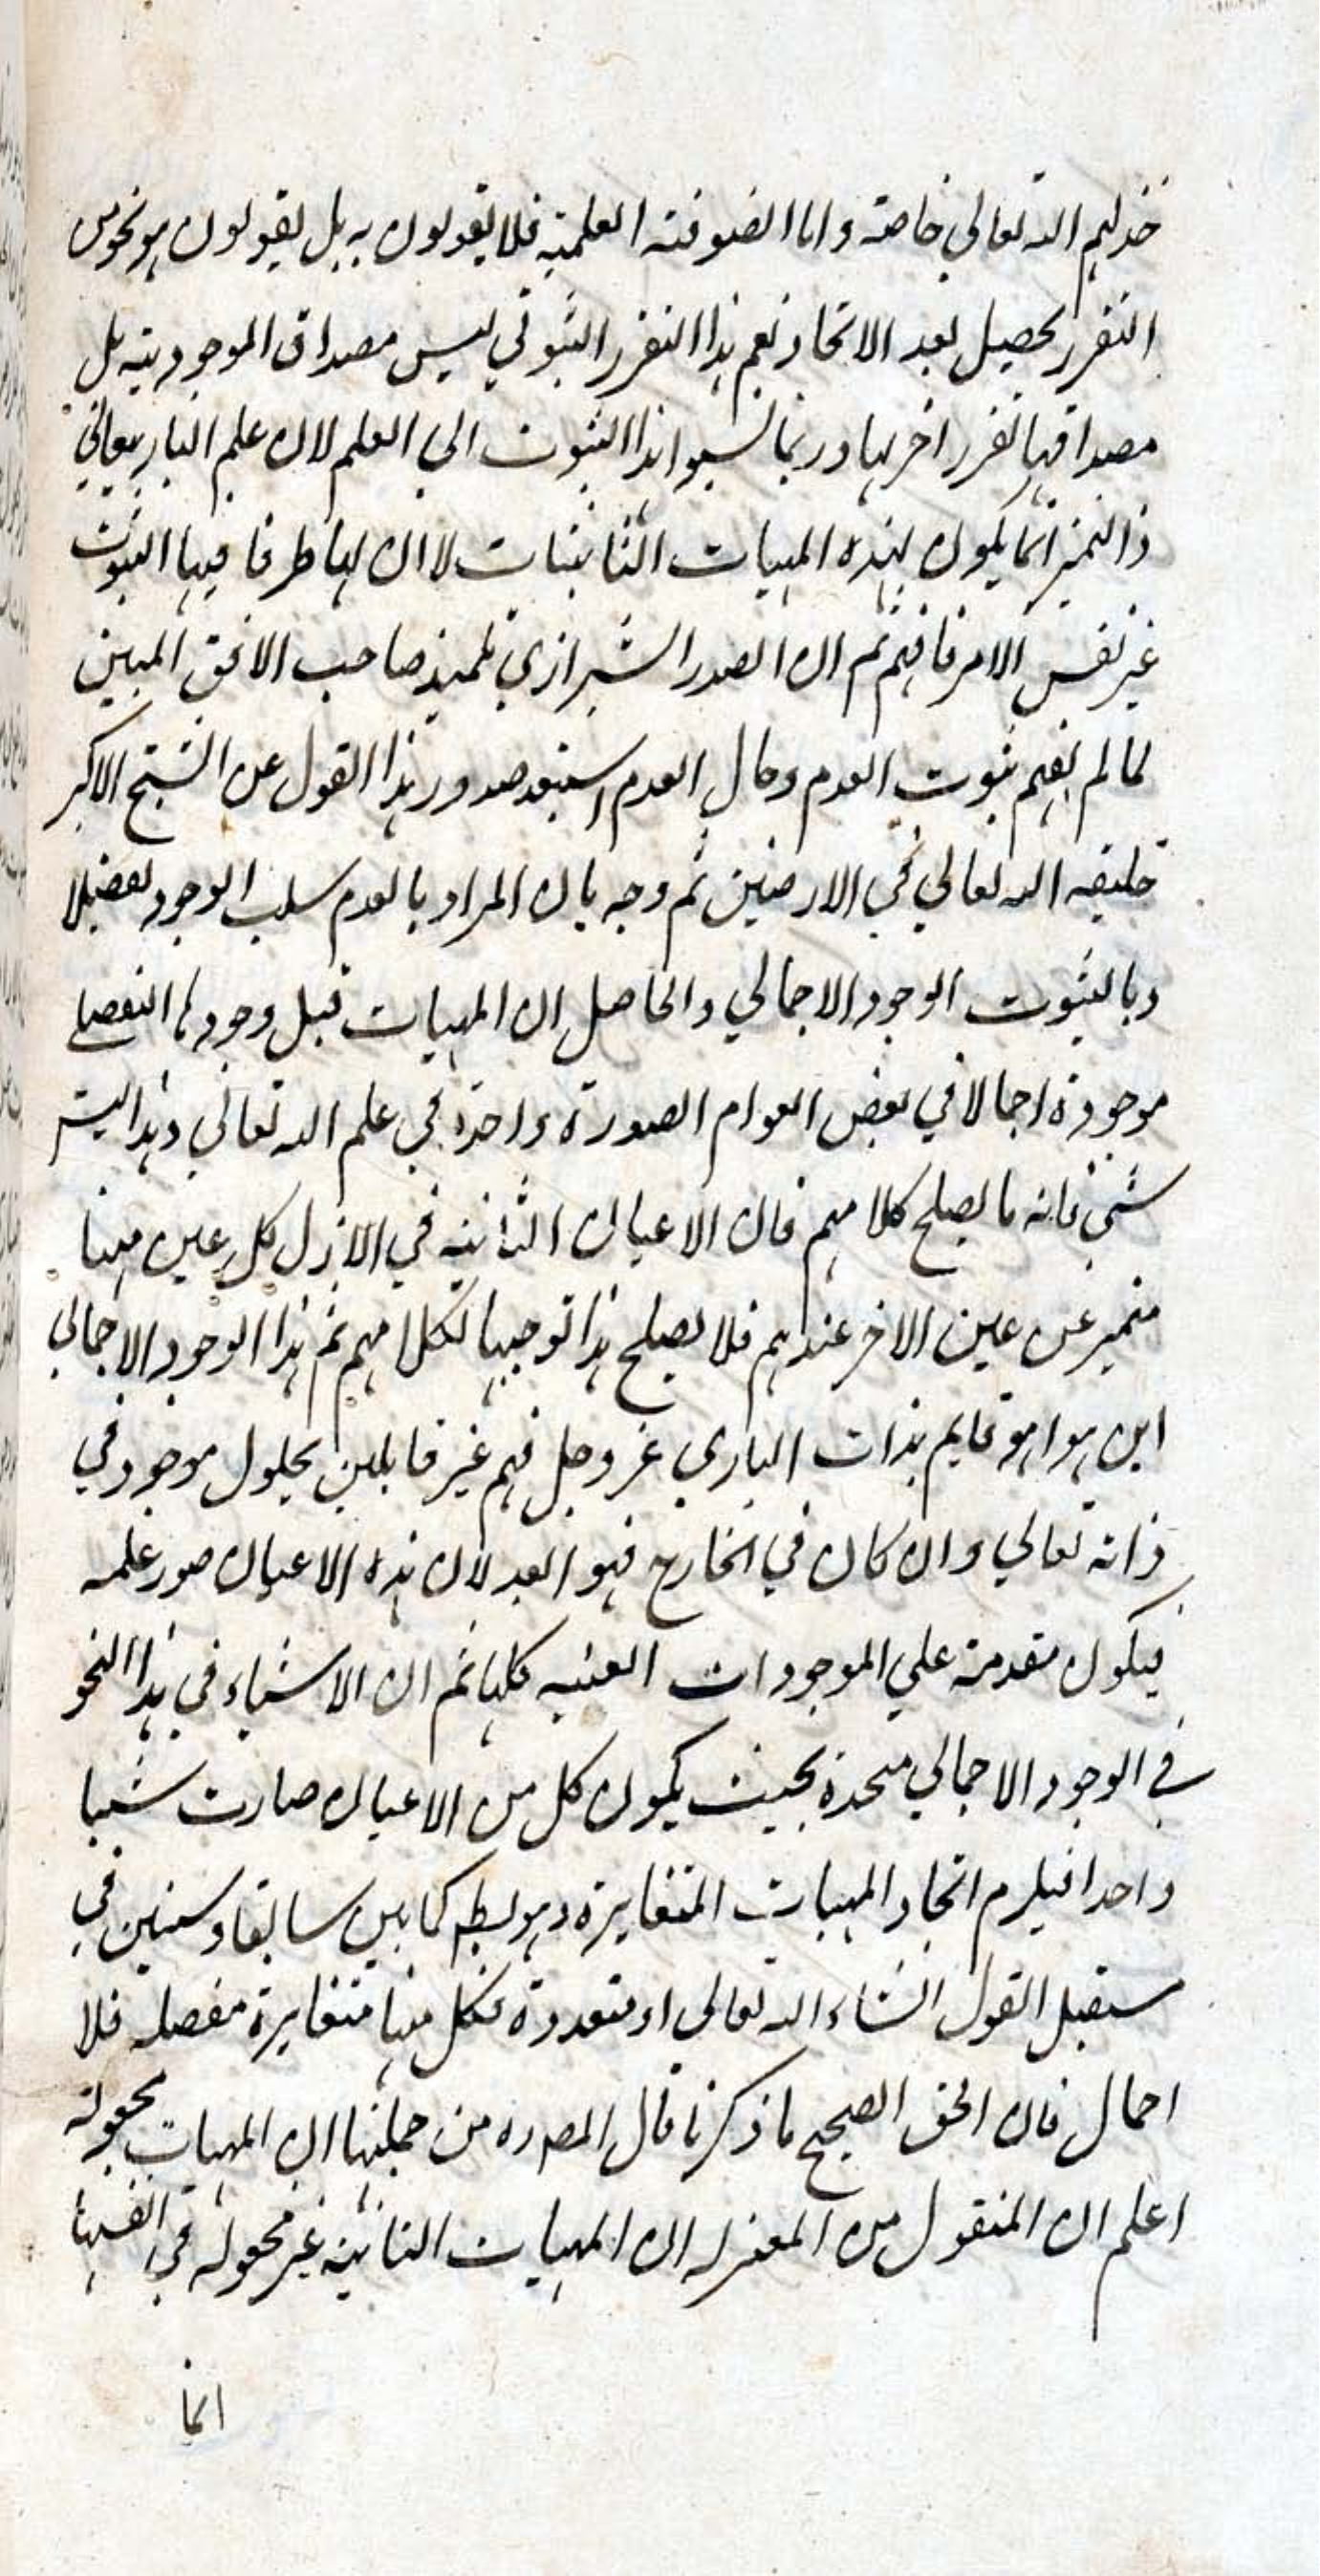 خذلهم الله تعالي خاصة واما الصوفية العلية فلا يقولون به بل يقولون هو نحو من
التقرر يحصل بعد الاتحاد نعم هذا التقرر الثبوتي ليس مصداق الموجودية بل
مصداقها تقرر اخر لها وربما نسبوا هذا الثبوت الي العلم لان علم الباري تعالي
ذا التميز انما يكون لهذه المهيات الثابتات لا ان لها ظرفا فيها الثبوت
غير نفس الامر فافهم ثم ان الصدر الشيرازي تلميذ صاحب الافق المبين
لما لم يفهم ثبوت العدم وحال العدم استبعد صدور هذا القول عن الشيخ الاكبر
خليفه الله تعالي في الارضين ثم وجه بان المراد بالعدم سلب الوجود تفصيلا
وبالثبوت الوجود الاجمالي والحاصل ان المهيات قبل وجودها التفصيلي
موجودة اجمالا في بعض العوالم الصورة واحدة في علم الله تعالي وهذا ليس
بشئ فانه ما يصلح كلامهم فان الاعيان الثابتة في الازل كل عين منها
متميز عن عين الاخر عندهم فلا يصلح هذا توجيها لكلامهم ثم هذا الوجود الاجمالي
اين هو اهو قايم بذات الباري عز وجل فهم غير قابلين بحلول موجود في
ذاته تعالي وان كان في الخارج فهو ابعد لان هذه الاعيان صور علمه
فيكون مقدمة علي الموجودات العينيه كلها ثم ان الاشياء في هذا النحو
في الوجود الاجمالي متحدة بحيث يكون كل من الاعيان صارت شيئا
واحدا فيلزم اتحاد المهيات المتغايرة وهو بط كما بين سابقا وسنبين في
مستقبل القول انشاء الله تعالى او متعددة فكل منها متغايرة مفصله فلا
اجمال فان الحق الصحيح ما ذكرنا قال المص ره من جملتها ان المهيات مجعولة
اعلم ان المنقول من المعتزله ان المهيات الثابتة غير مجعولة في انفسها
انما